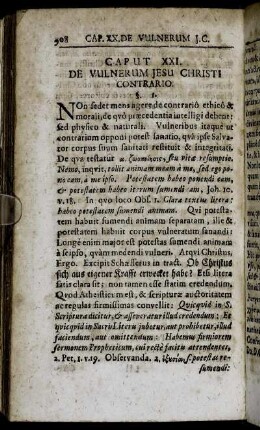 908 CAP. XX. DE VULNERUM J.C.
CAPUT XXI.
DE VULNERUM JESU CHRISTI
CONTRARIO.
§. 1.
NOn sedet mens agere de contrario ethicô &
morali, de quô præcedentia intelligi debent:
sed physico & naturali. Vulneribus itaque ut
contrarium opponi potest sanatio, quâ ipse Salva-
tor corpus suum sanitati restituit & integritati.
De quâ testatur seu vitâ resumptio.
Nemo, inquit, tollit animam meam à me, sed ego po-
no eam, à me ipso. Potestatem habeo ponendi eam,
& potestatem habeo iterum sumendi eam, Joh. 10.
v. 18. In quo loco Obs. 1. Clara textus litera:
habeo potestatem sumendi animam. Qui potesta-
tem habuit sumendi animam separatam, ille &
potestatem habuit corpus vulneratum sanandi:
Longè enim major est potestas sumendi animam
à seipso, quàm medendi vulneri. Atqui Christus,
Ergo. Excipit Schasleius in tract. Ob Christus
sich aus eigener Krafft erwecket habe? Etsi litera
satis clara sit; non tamen esse statim credendum,
Quod Atheismi est, & scripturæ auctoritatem
ac regulas firmissimas convellit: Quicquid in S.
Scriptura dicitur, & asseveratur illud credendum: Et
quicquid in Sacris Literis jubetur, aut prohibetur, illud
faciendum, aut omittendum: Habemus firmiorem
sermonem Propheticum, cui rectè facitis attendentes,
2. Pet. 1. v. 19. Observanda. 2. ἐξουσία s. potestas re-
sumendi: